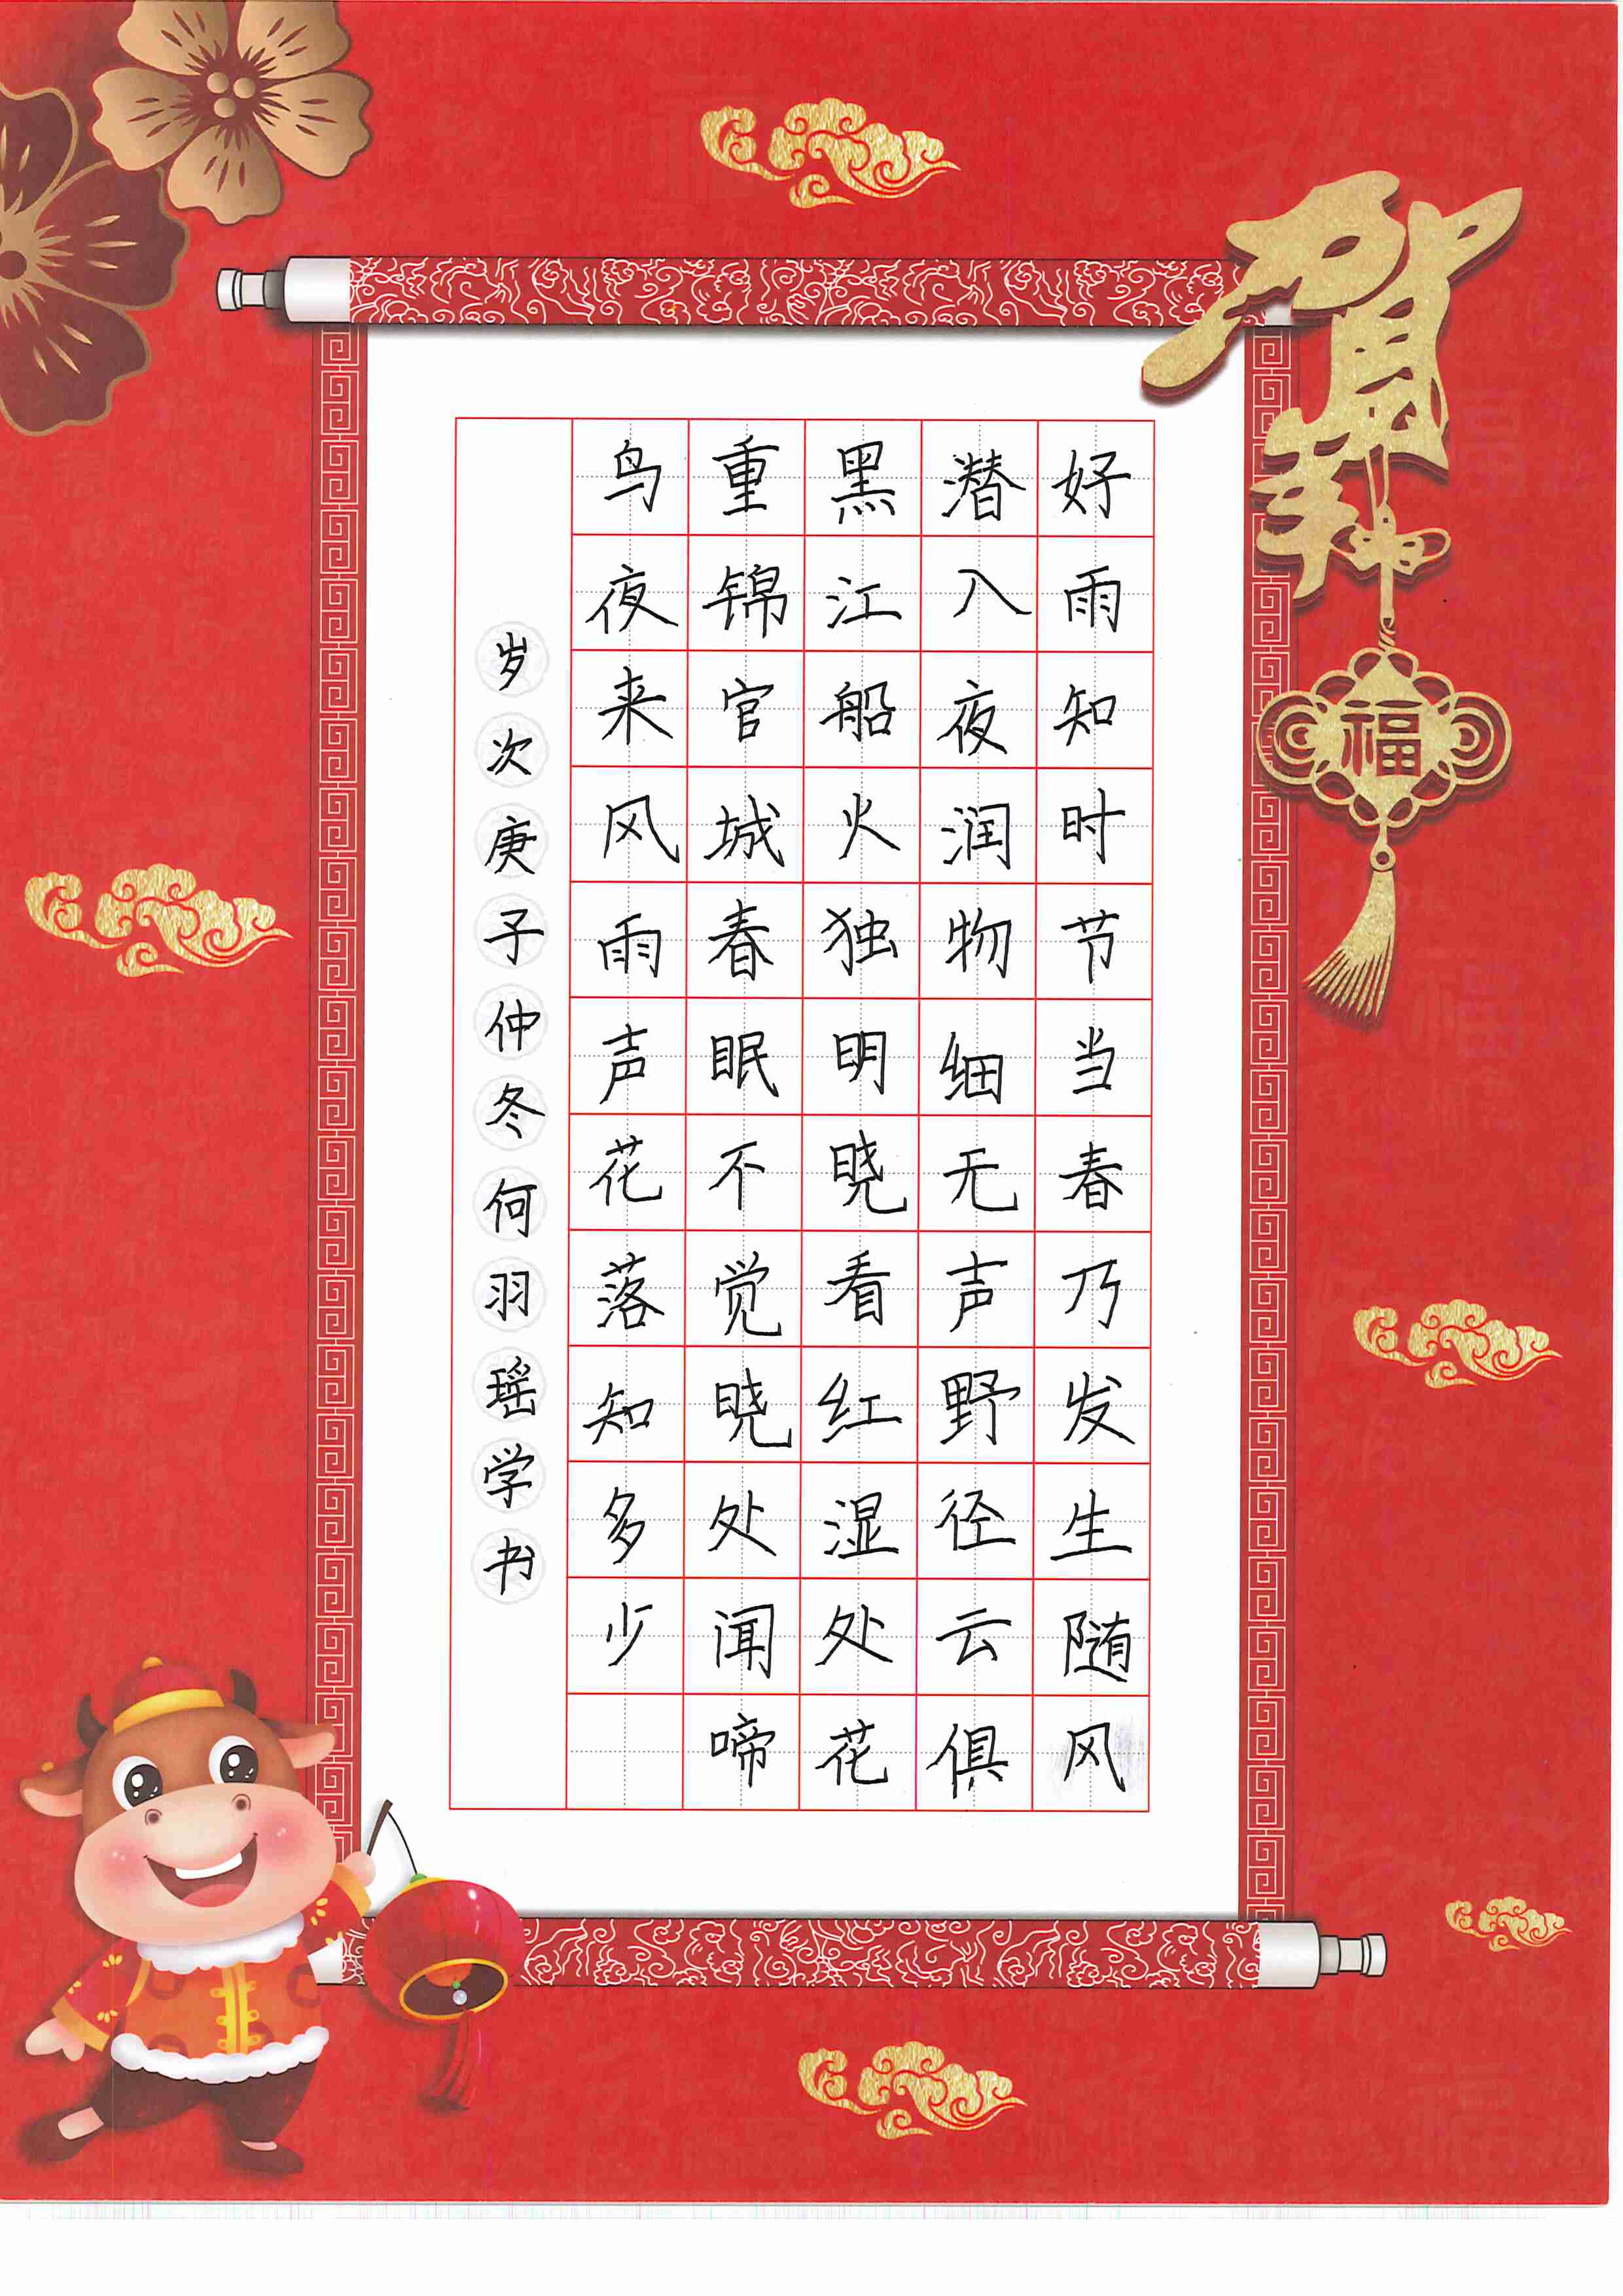 贺年
福
好雨知时节当春乃发生随风
潜入夜润物细无声野径云俱
黑江船火独明晓看红湿处花
重锦官城春眠不觉晓处闻啼
鸟夜来风雨声花落知多少
岁次庚子仲冬何羽瑶学书